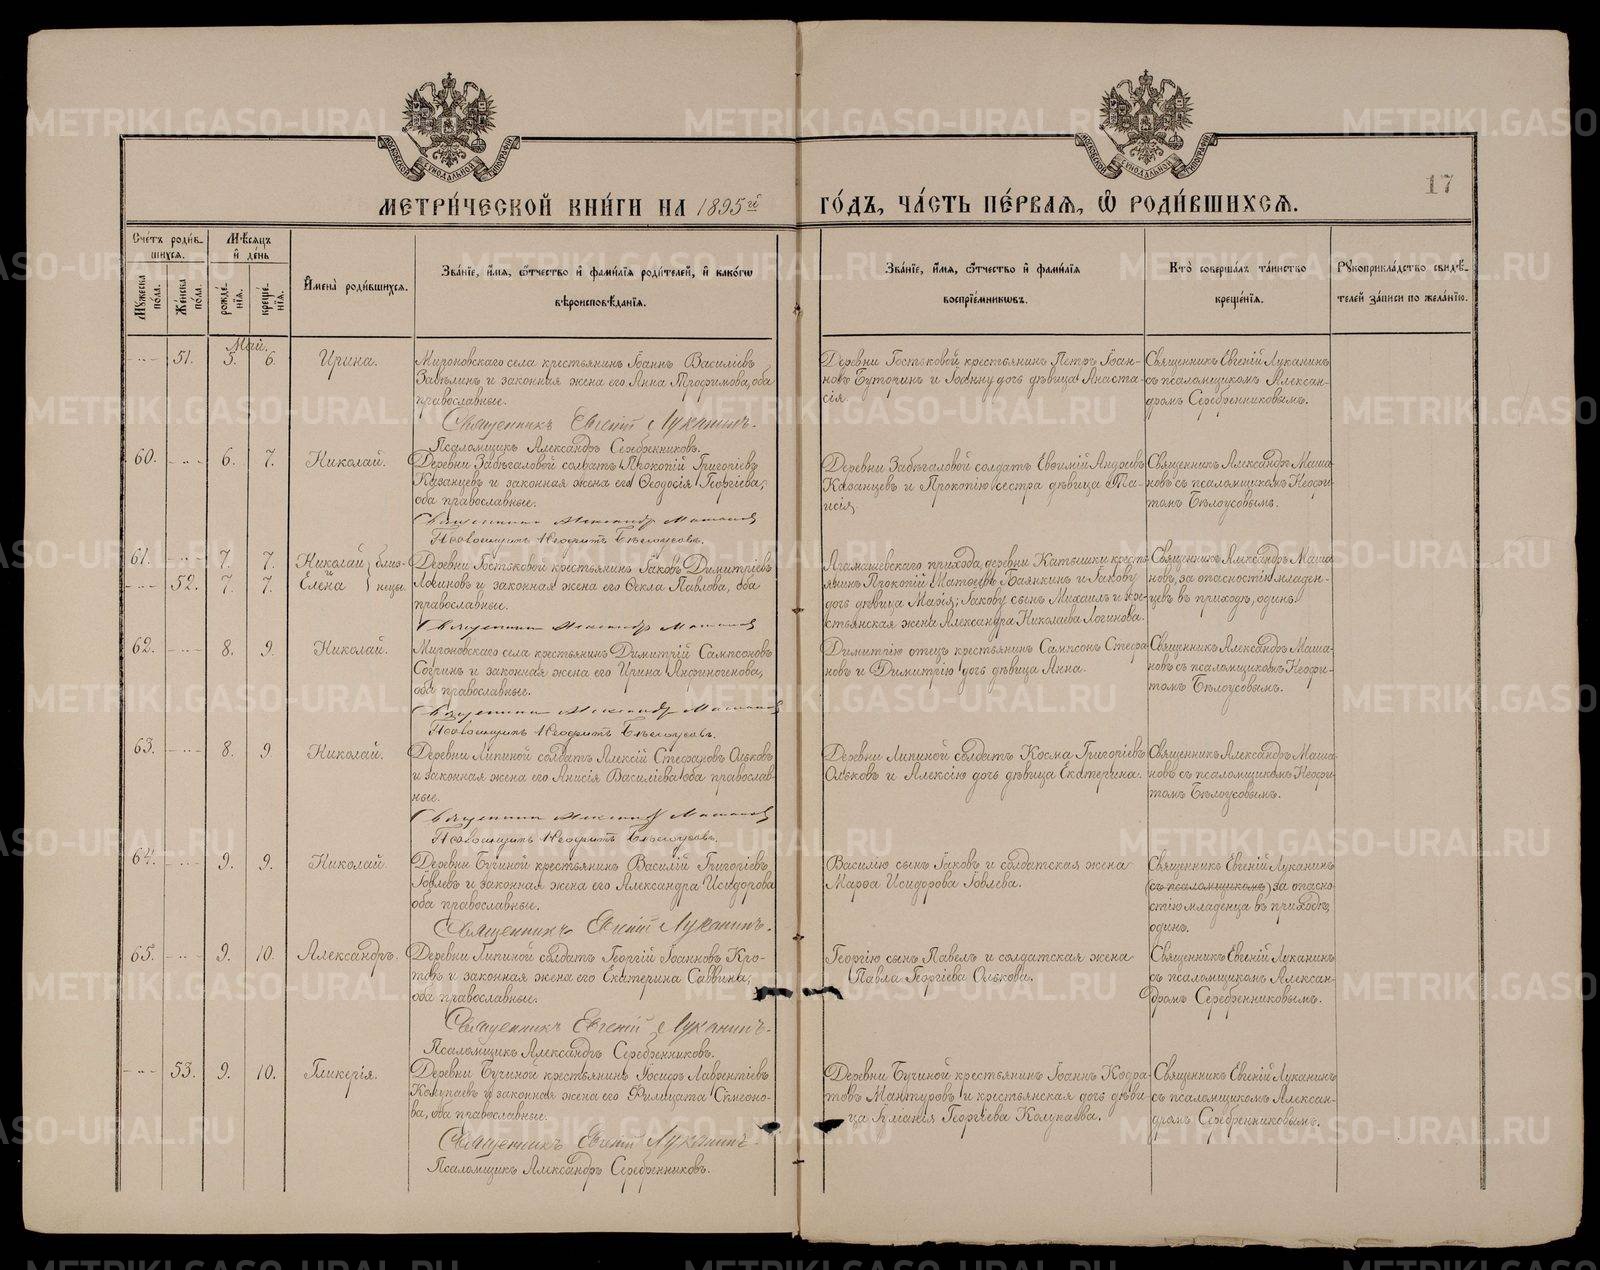 МОСКОВСКОЙ СѴНОДАЛЬНОЙ ТИПОГРАФІИ
МОСКОВСКОЙ СѴНОДАЛЬНОЙ ТИПОГРАФІИ
17
МЕТРИ́ЧЕСКОЙ КНИ́ГИ НА 1895й ГО́ДЪ, ЧА́СТЬ ПЕ́РВАЯ, Ѡ҆ РОДИ́ВШИХСЯ.
Сче́тъ роди́в-
шихся.
Мѣ́сяцъ
и҆ де́нь
Мꙋ́жеска по́ла.
Же́нска по́ла.
рожде́-нїѧ.
креще́-нїѧ.
И҆мена̀ роди́вшихся.
Зва́нїе, и҆́мя, ѻ҆́тчество и҆ фами́лїя роди́телей, и҆ како́гѡ
вѣроисповѣ́данїя.
Зва́нїе, и҆́мя, ѻ҆́тчество и҆ фами́лїя
воспрїе́мникѡвъ.
Кто̀ соверша́лъ та́инство
креще́нїя.
Рꙋкоприкла́дство свидѣ́-
телей за́писи по жела́нїю.
Май.
-..- 51. 5. 6. Ирина.
Мироновскаго села крестьянинъ Іоаннъ Василіевъ
Забѣлинъ и законная жена его Анна Трофимова, оба
православные.
Священникъ Евгеній Луканинъ.
Псаломщикъ Александръ Серебренниковъ.
Деревни Гостьковой крестьянинъ Петръ Іоан-
новъ Буторинъ и Іоанну дочь дѣвица Анаста-
сія.
Священникъ Евгеній Луканинъ
съ псаломщикомъ Алексан-
дромъ Серебренниковымъ.
60. -..- 6. 7. Николай.
Деревни Забѣгаловой солдатъ Прокопій Григоріевъ
Казанцевъ и законная жена его Ѳеодосія Георгіева,
оба православные.
Священникъ Александръ Машановъ
Псаломщикъ Неофитъ Бѣлоусовъ.
Деревни Забѣгаловой солдатъ Евѳимій Андреевъ
Казанцевъ и Прокопію сестра дѣвица Та-
исія.
Священникъ Александръ Маша-
новъ съ псаломщикомъ Неофи-
томъ Бѣлоусовымъ.
61. -..- 7. 7. Николай близ-
-..- 52. 7. 7. Елена нецы.
Деревни Гостьковой крестьянинъ Іаковъ Димитріевъ
Логиновъ и законная жена его Ѳекла Павлова, оба
православные.
Священникъ Александръ Машановъ
Арамашевскаго прихода, деревни Катышки кресть-
янинъ Прокопій Матѳеевъ Баянкинъ и Іакову
дочь дѣвица Марія; Іакову сынъ Михаилъ и кре-
стьянская жена Александра Николаева Логинова.
Священникъ Александръ Маша-
новъ, за опасностію младен-
цевъ въ приходѣ, одинъ.
62. -..- 8. 9. Николай.
Мироновскаго села крестьянинъ Димитрій Сампсоновъ
Согринъ и законная жена его Ирина Анфиногенова,
оба православные.
Священникъ Александръ Машановъ
Псаломщикъ Неофитъ Бѣлоусовъ.
Димитрію отецъ крестьянинъ Сампсонъ Стефа-
новъ и Димитрію дочь дѣвица Анна.
Священникъ Александръ Маша-
новъ съ псаломщикомъ Неофи-
томъ Бѣлоусовымъ.
63. -..- 8. 9 Николай.
Деревни Липиной солдатъ Алексій Стефановъ Ольковъ
и законная жена его Анисія Василіева оба православ-
ные.
Священникъ Александръ Машановъ
Псаломщикъ Неофитъ Бѣлоусовъ.
Деревни Липиной солдатъ Косма Григоріевъ
Ольковъ и Алексію дочь дѣвица Екатерина.
Священникъ Александръ Маша-
новъ съ псаломщикомъ Неофи-
томъ Бѣлоусовымъ.
64. -..- 9. 9. Николай.
Деревни Бучиной крестьянинъ Василій Григоріевъ
Іовлевъ и законная жена его Александра Исидорова
оба православные.
Священникъ Евгеній Луканинъ.
Василію сынъ Іаковъ и солдатская жена
Марѳа Исидорова Іовлева.
Священникъ Евгеній Луканинъ
(съ псаломщикомъ) за опасно-
стію младенца въ приходѣ,
одинъ.
65. -..- 9. 10. Александръ.
Деревни Липиной солдатъ Георгій Іоанновъ Кро-
товъ и законная жена его Екатерина Саввина,
оба православные.
Священникъ Евгеній Луканинъ.
Псаломщикъ Александръ Серебренниковъ.
Георгію сынъ Павелъ и солдатская жена
Павла Георгіева Олькова.
Священникъ Евгеній Луканинъ
съ псаломщикомъ Алексан-
дромъ Серебренниковымъ.
-..- 53. 9. 10. Гликерія.
Деревни Бучиной крестьянинъ Іосифъ Лаврентіевъ
Колупаевъ и законная жена его Филицата Симеоно-
ва, оба православные.
Священникъ Евгеній Луканинъ
Псаломщикъ Александръ Серебренниковъ.
Деревни Бучиной крестьянинъ Іоаннъ Кодра-
товъ Мантуровъ и крестьянская дочь дѣви-
ца Іуліанія Георгіева Колупаева.
Священникъ Евгеній Луканинъ
съ псаломщикомъ Алексан-
дромъ Серебренниковымъ.
METRIKI.GASO-URAL.RU